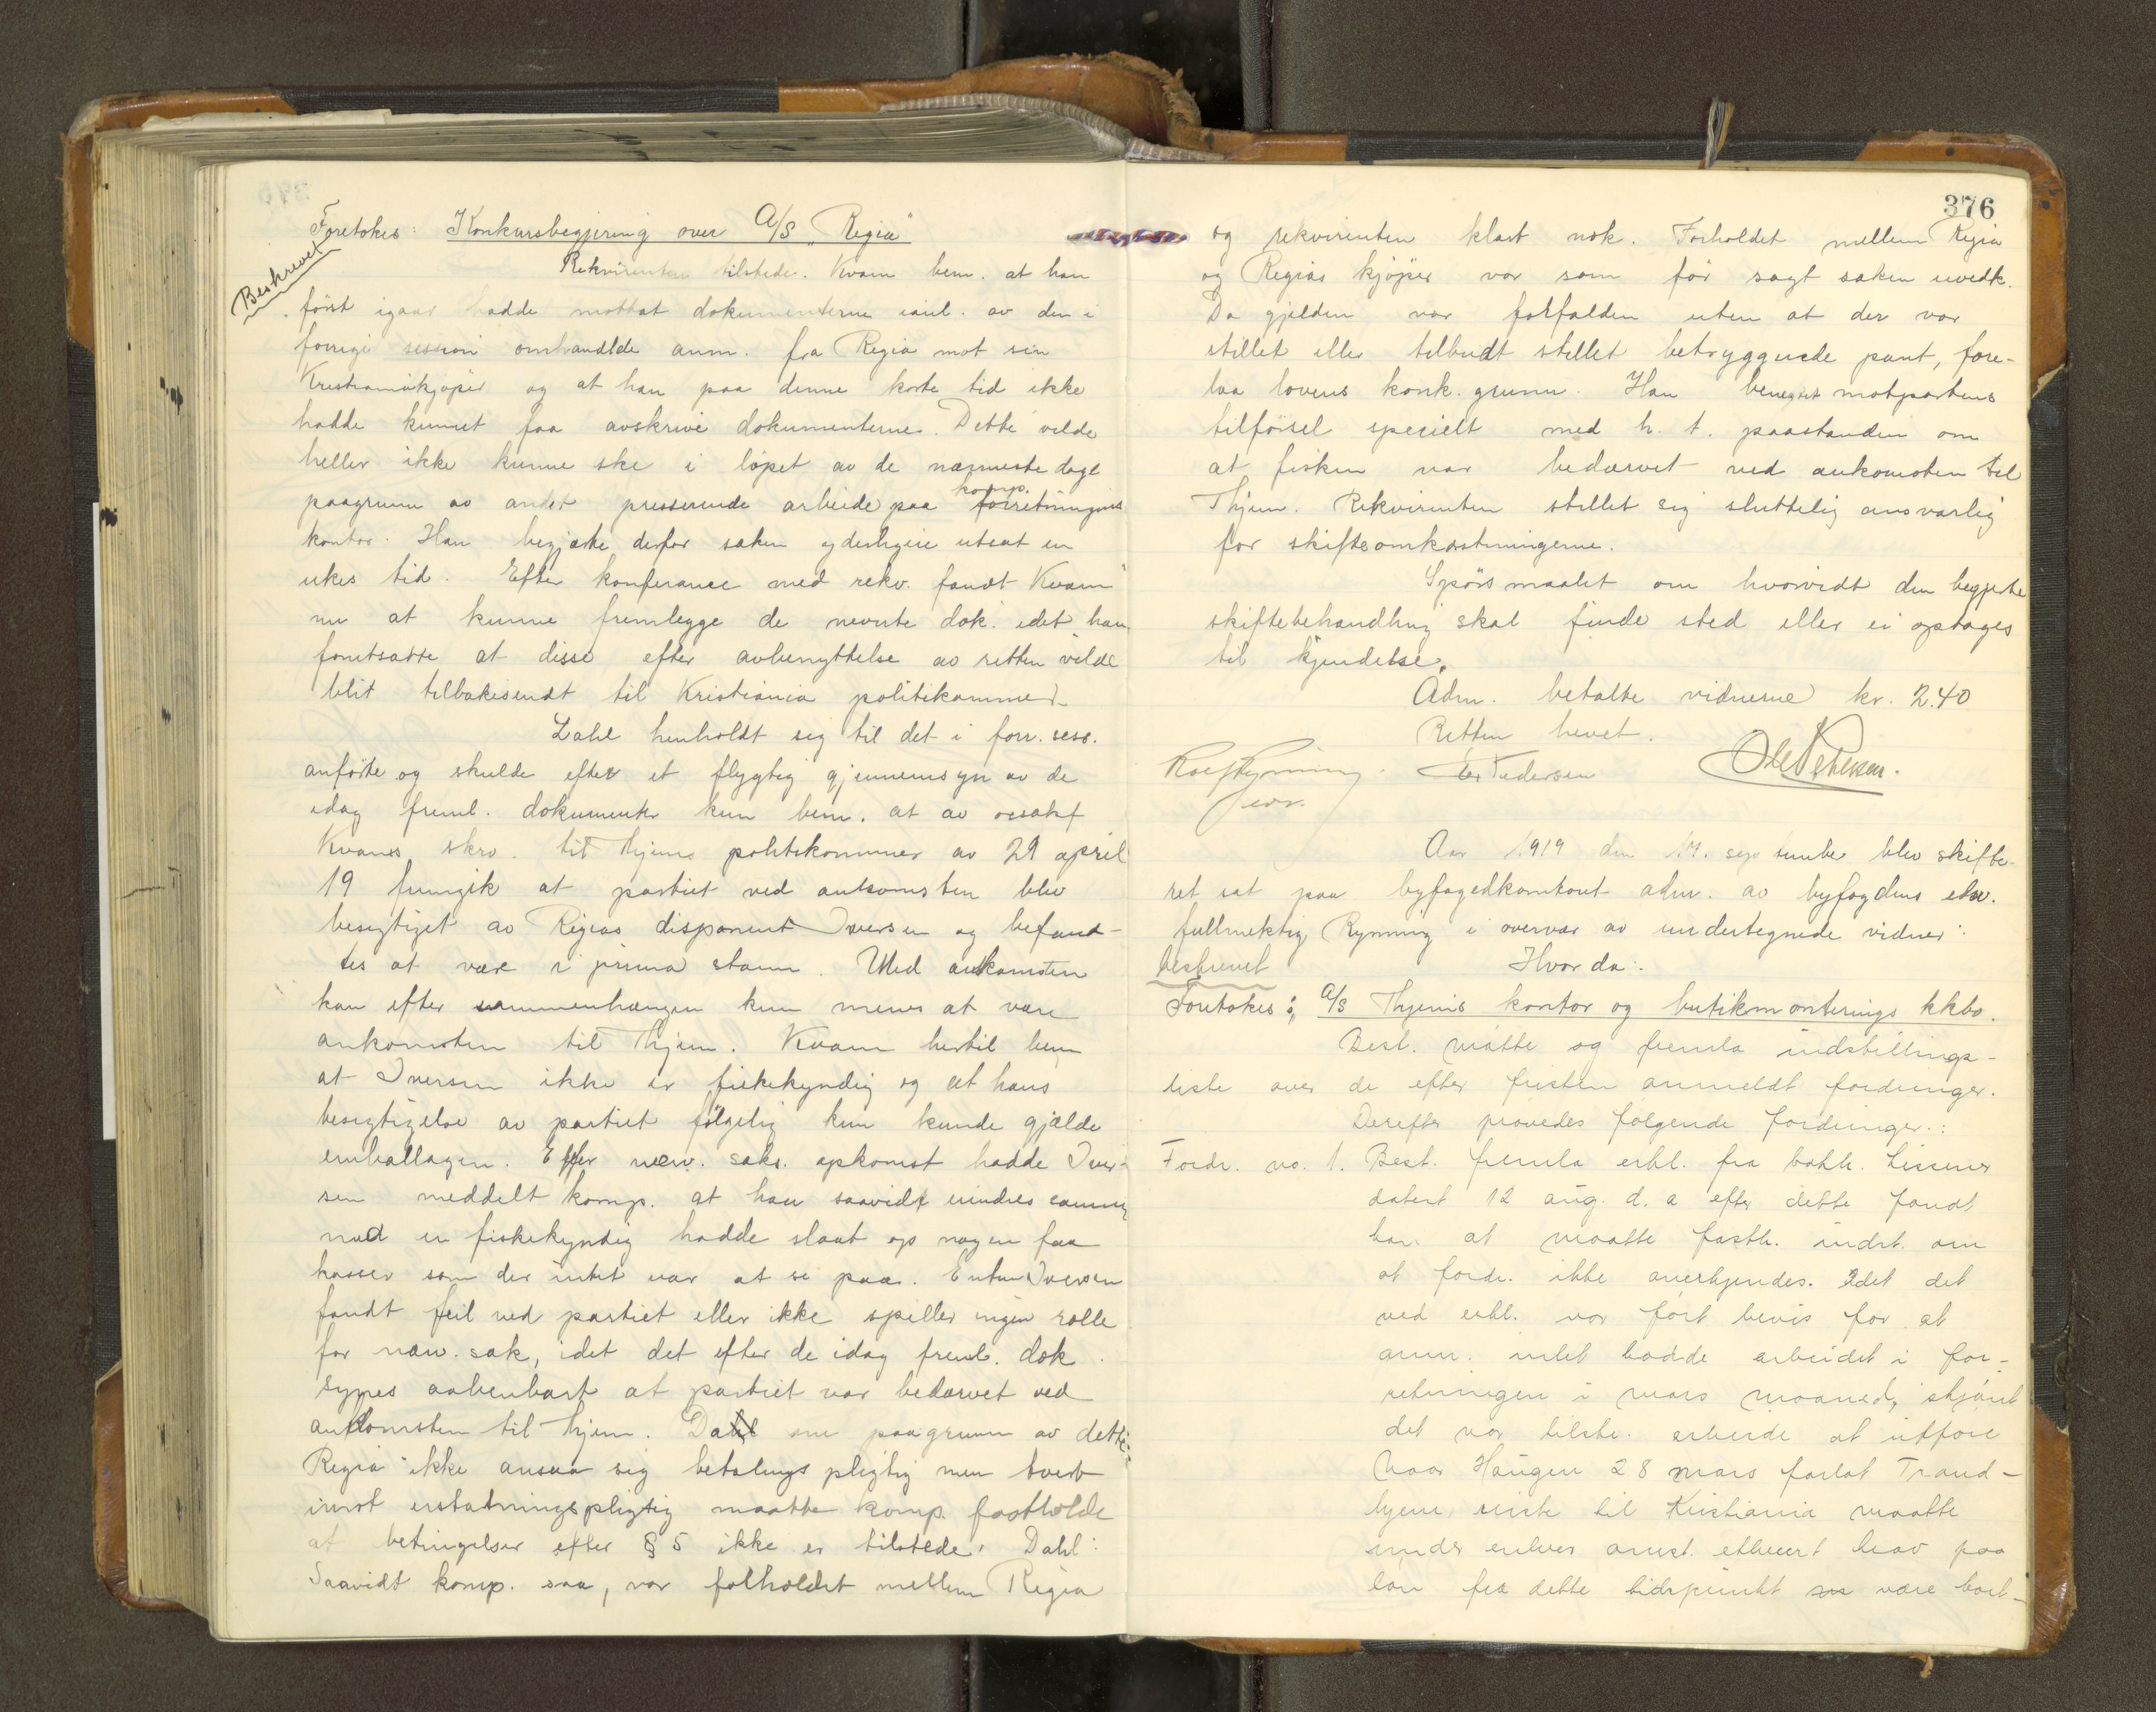 Foretokes: Konkursbegjæring over A/S "Regia"
Beskrevet
Rekvirenten tilstede. Kvam bem. at han
først igaar hadde mottat dokumenterne anl. av den i
forrige session omhandlde anm. fra Regia mot sin
Kristianiakjøper og at han paa denne korte tid ikke
hadde kunnet faa avskrive dokumenterne. Dette vilde
heller ikke kunne ske i løpet av de nærmeste dage
paagrunn av andet presserende arbeide paa komp. forretningens
kontor. Han begjærte derfor saken yderligere utsat en
ukes tid. Efter konferance med rekv. fandt Kvam
nu at kunne fremlegge de nevnte dok. idet han
forutsatte at disse efter avbenyttelse av retten vilde
blit tilbakesendt til Kristiania politikammer.
Dahl henholdt sig til det i forr. sess.
anførte og skulde efter et flygtig gjennemsyn av de
idag freml. dokumenter kun bem. at av
Kvams skrv. til Thjems politikammer av 29 april
19 fremgik at partiet ved ankomsten blev
besigtiget av Regias disponent Iversen og befand-
tes at være i prima stann. Med ankomsten
kan efter sammenhængen kun menes at være
ankomsten til Thjem. Kvam hertil bem
at Iversen ikke er fiskekyndig og at hans
besigtigelse av partiet følgelig kun kunde gjælde
emballagen. Efter nærv. saks. opkomst hadde Iver-
sen meddelt komp. at han saavidt mindes sammen
med en fiskekyndig hadde slaat op nogen faa
kasser som der intet var at se paa. Enten Iversen
fandt feil ved partiet eller ikke spiller ingen rolle
for nærv. sak, idet det efter de idag freml. dok.
synes aabenbart at partiet var bedærvet ved
ankomsten til Thjem. Dahl om paagrunn av dette
Regia ikke ansaa sig betalings pligtig men tvert
imot erstatningspligtig maatte komp. fastholde
at betingelser efter § 5 ikke er tilstede. Dahl:
Saavidt komp. saa, var forholdet mellem Regia
376
og rekvirenten klart nok. Forholdet mellem Regia
og Regias kjøper var som før sagt saken uvedk.
Da gjælden var forfalden uten at der var
stillet eller tilbudt stillet betryggende pant, fore-
laa lovens konk. grunn. Han benegtet motpartens
tilførsel specielt med h. t. paastanden om
at fisken var bedærvet ved ankomsten til
Thjem. Rekvirenten stillet sig sluttelig ansvarlig
for skifteomkostningerne.
Spørsmaalet om hvorvidt den begjærte
skiftebehandling skal finde sted eller ei optages
til kjendelse.
Adm. betalte vidnerne kr. 2.40
Retten hevet.
Rolf Rynning
Pedersen
Ole Petersen.
Aar 1919 den 19. september blev skifte-
ret sat paa byfogedkontoret adm. av byfogdens edsv.
fullmektig Rynning i overvær av undertegnede vidner:
beskrevet
Hvor da:
Foretokes: A/S Thjems kontor og butikmonterings kkbo.
Best. møtte og fremla indstillings-
liste over de efter fristen anmeldt fordringer.
Derefter prøvedes følgende fordringer.:
Fordr. no. 1. Best. fremla erkl. fra bokh. Lissner
datert 12 aug. d. a efter dette fandt
han at maatte fasth. indst. om
at fordr. ikke anerkjendes. Idet det
ved erkl. var ført bevis for at
anm. intet hadde arbeidet i for-
retningen i mars maaned, skjønt
det var tilstr. arbeide at utføre
Naar Haugen 28 mars forlot Trond-
hjem, reiste til Kristiania maatte
under enhver omst. ethvert krav paa
løn fra dette tidspunkt være bort-